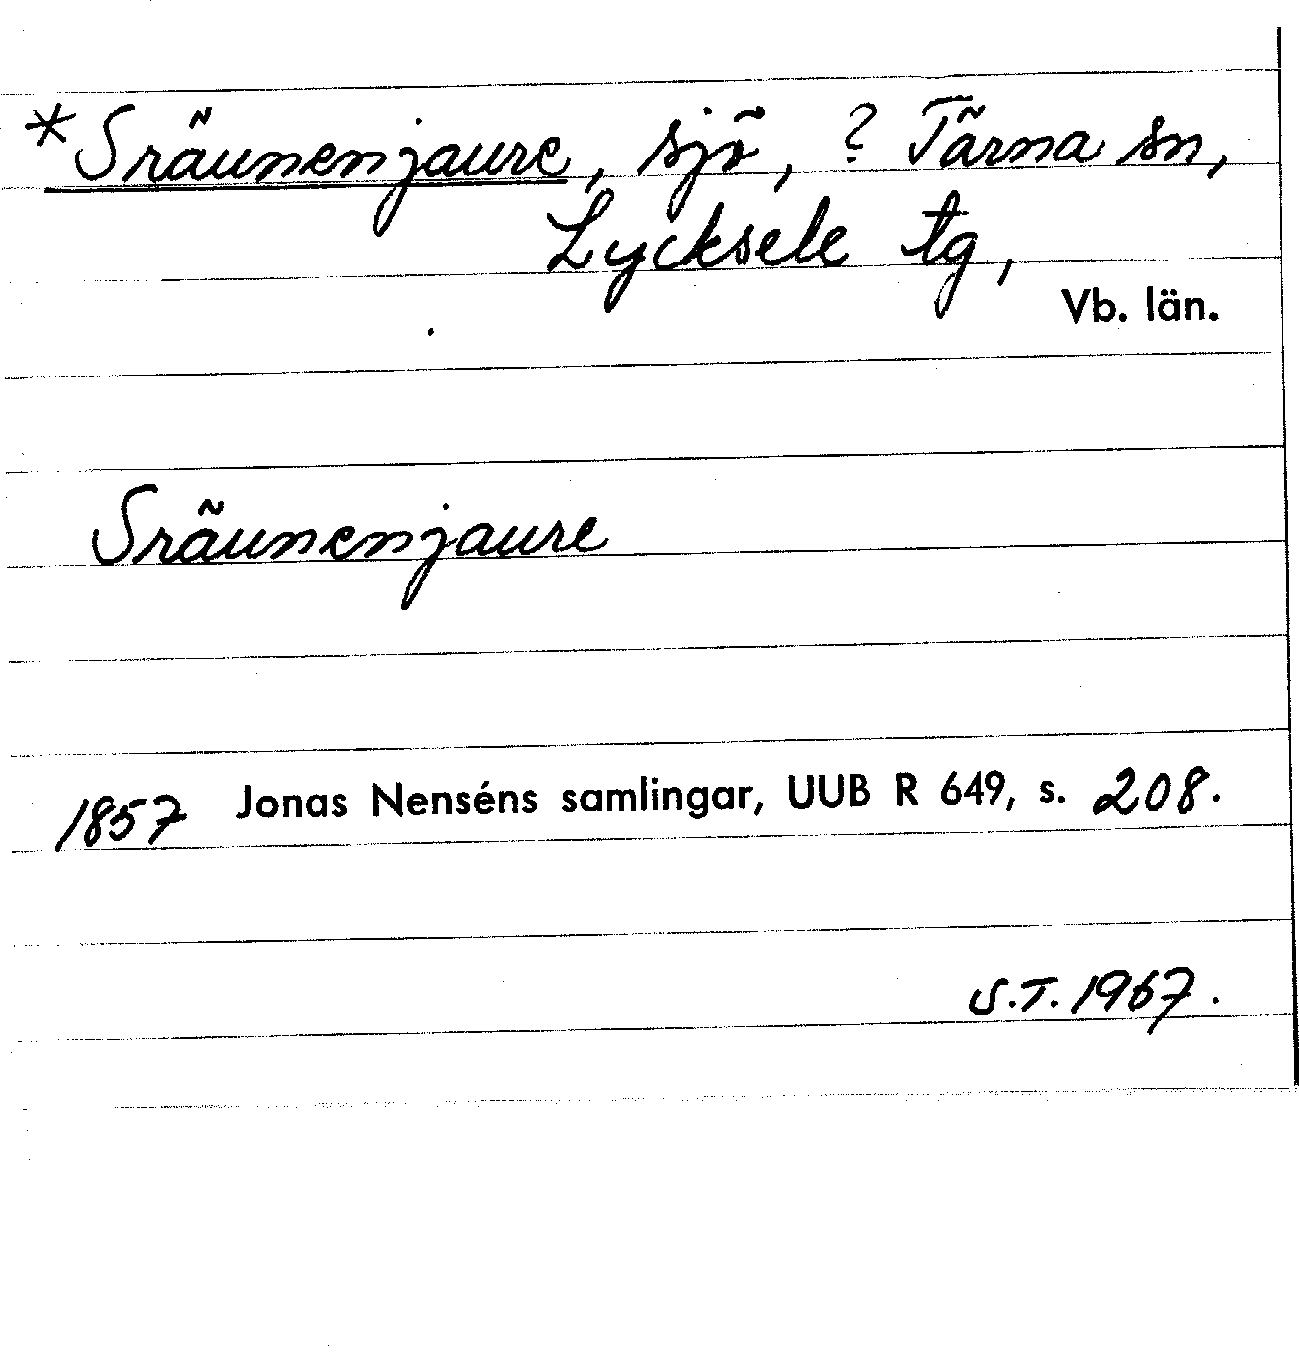 *Sräunenjaure, sjö, ? Tärna sn,
Lycksele tg,
Vb. län.
Sräunenjaure
1857 Jonas Nenséns samlingar, UUB R 649, s. 208.
S.T. 1967.